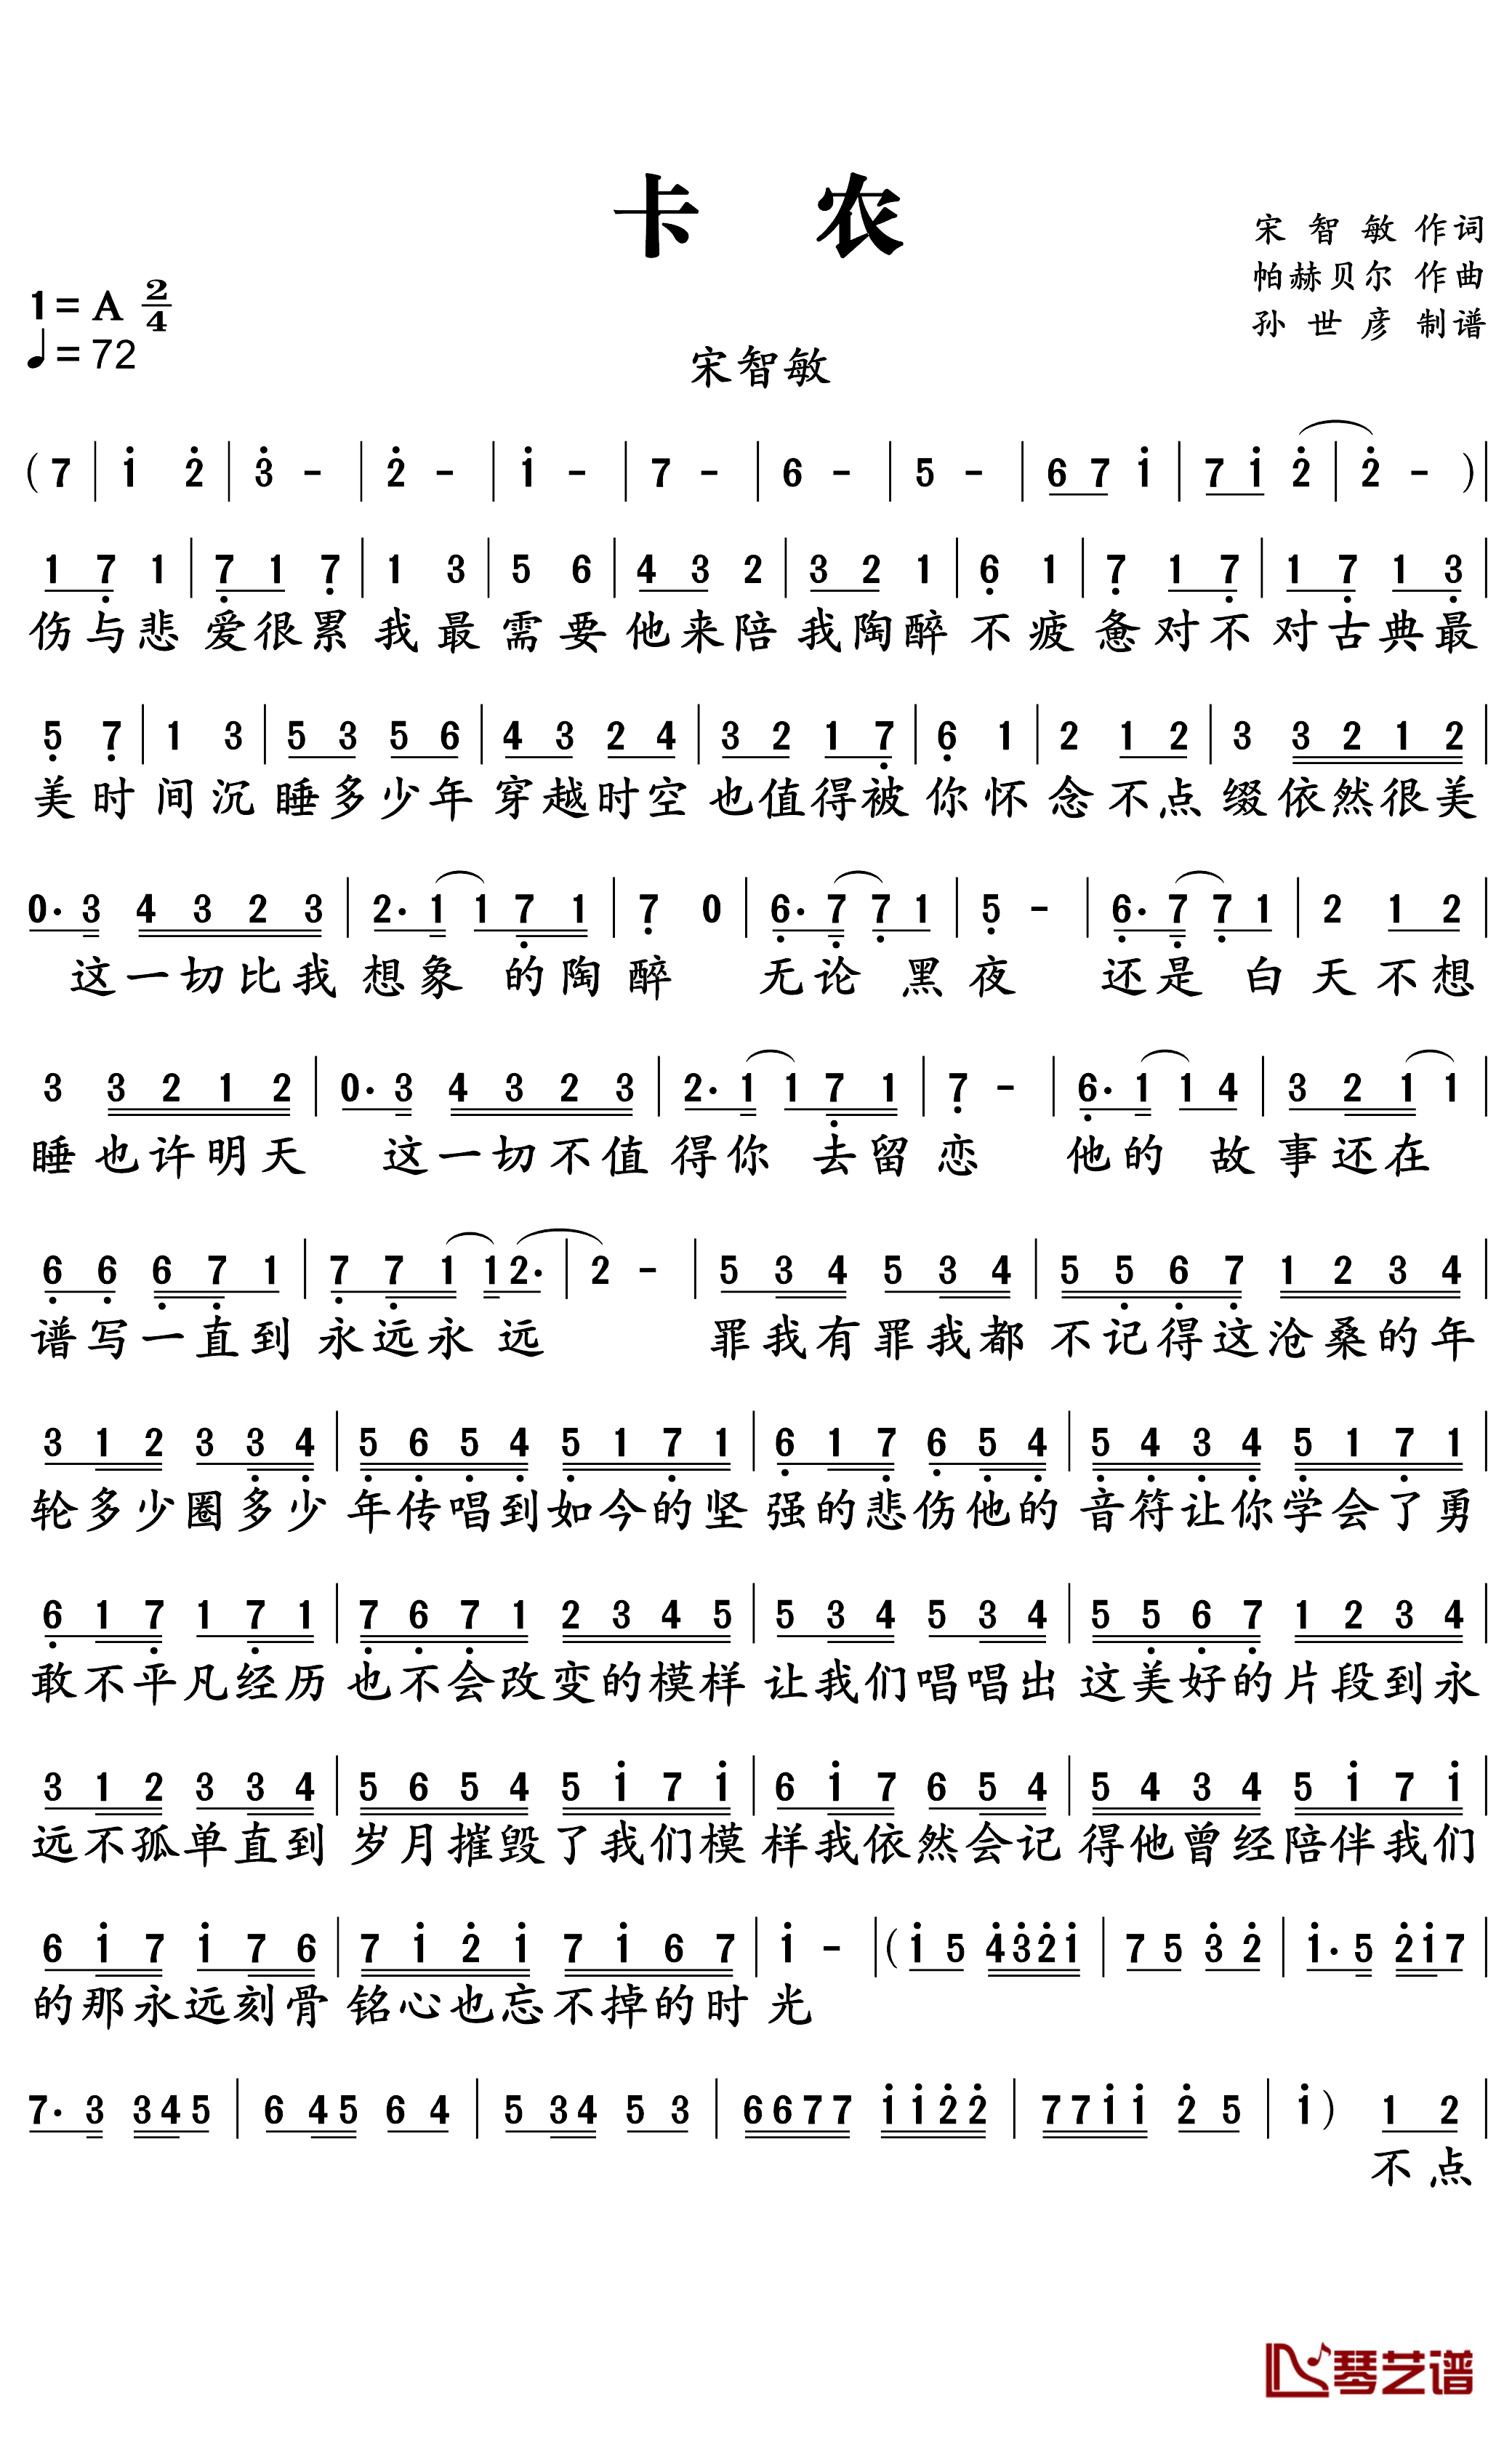 卡 农
宋 智 敏 作词
帕赫贝尔 作曲
孙 世 彦 制谱
1= A 2/4
♩= 72
宋智敏
( 7 | i̇ 2̇ | 3̇ - | 2̇ - | i̇ - | 7 - | 6 - | 5 - | 6 7 i̇ | 7 i̇ 2̇ | 2̇ - ) |
1 7̣ 1 | 7̣ 1 7̣ | 1 3 | 5 6 | 4 3 2 | 3 2 1 | 6̣ 1 | 7̣ 1 7̣ | 1 7̣ 1 3̣ |
伤与悲 爱很累 我最需要他来陪 我陶醉 不疲惫对不 对古典最
5̣ 7̣ | 1 3 | 5 3 5 6 | 4 3 2 4 | 3 2 1 7̣ | 6̣ 1 | 2 1 2 | 3 3 2 1 2 |
美时间沉睡多少年 穿越时空 也值得被 你怀念不点 缀依然很美
0. 3 4 3 2 3 | 2. 1 1 7̣ 1 | 7̣ 0 | 6̣. 7̣ 7̣ 1 | 5̣ - | 6̣. 7̣ 7̣ 1 | 2 1 2 |
这一切比我 想象 的陶醉 无论 黑夜 还是 白天不想
3 3 2 1 2 | 0. 3 4 3 2 3 | 2. 1 1 7̣ 1 | 7̣ - | 6̣. 1 1 4 | 3 2 1 1 |
睡也许明天 这一切不值 得你 去留恋 他的 故事还在
6̣ 6̣ 6̣ 7̣ 1 | 7̣ 7̣ 1 1 2. | 2 - | 5 3 4 5 3 4 | 5 5̣ 6̣ 7̣ 1 2 3 4 |
谱写一直到 永远永 远 罪我有罪我都 不记得这沧桑的年
3 1 2 3 3̣ 4̣ | 5̣ 6̣ 5̣ 4̣ 5̣ 1 7̣ 1 | 6̣ 1 7̣ 6̣ 5̣ 4̣ | 5̣ 4̣ 3̣ 4̣ 5̣ 1 7̣ 1 |
轮多少圈多少 年传唱到如今的坚 强的悲伤他的 音符让你学会了勇
6̣ 1 7̣ 1 7̣ 1 | 7̣ 6̣ 7̣ 1 2 3 4 5 | 5 3 4 5 3 4 | 5 5̣ 6̣ 7̣ 1 2 3 4 |
敢不平凡经历 也不会改变的模样 让我们唱唱出 这美好的片段到永
3 1 2 3 3 4 | 5 6 5 4 5 i̇ 7 i̇ | 6 i̇ 7 6 5 4 | 5 4 3 4 5 i̇ 7 i̇ |
远不孤单直到 岁月摧毁了我们模 样我依然会记 得他曾经陪伴我们
6 i̇ 7 i̇ 7 6 | 7 i̇ 2̇ i̇ 7 i̇ 6 7 | i̇ - | ( i̇ 5 4̇ 3̇ 2̇ i̇ | 7 5 3̇ 2̇ | i̇. 5 2̇ i̇ 7 |
的那永远刻骨 铭心也忘不掉的时 光
7. 3 3 4 5 | 6 4 5 6 4 | 5 3 4 5 3 | 6 6 7 7 i̇ i̇ 2̇ 2̇ | 7 7 i̇ i̇ 2̇ 5 | i̇ ) 1 2 |
不点
琴艺谱